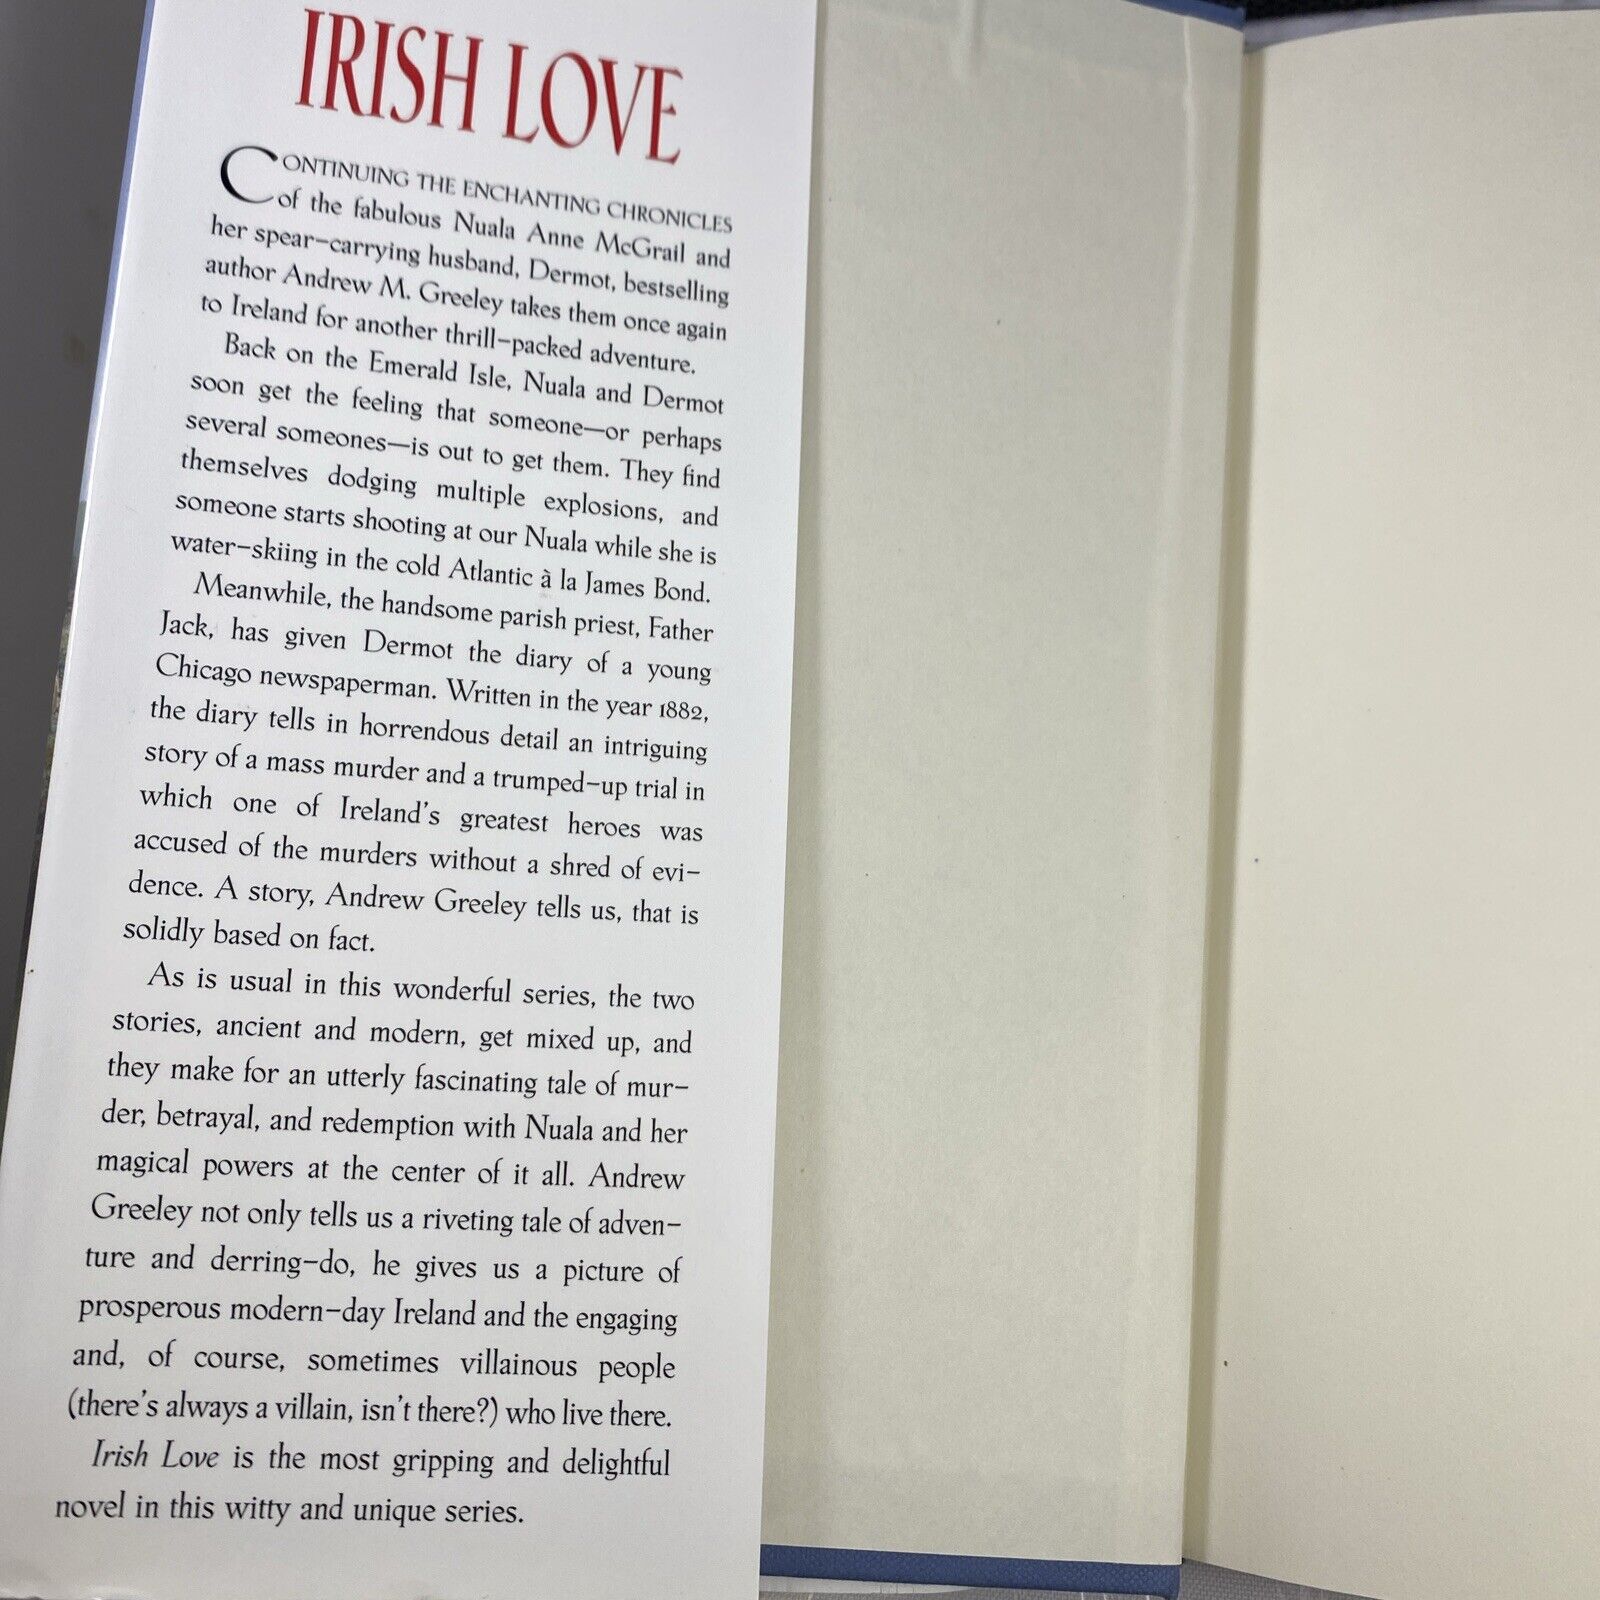 IRISH LOVE
CONTINUING THE ENCHANTING CHRONICLES
of the fabulous Nuala Anne McGrail and
her spear-carrying husband, Dermot, bestselling
author Andrew M. Greeley takes them once again
to Ireland for another thrill-packed adventure.
Back on the Emerald Isle, Nuala and Dermot
soon get the feeling that someone—or perhaps
several someones—is out to get them. They find
themselves dodging multiple explosions, and
someone starts shooting at our Nuala while she is
water-skiing in the cold Atlantic à la James Bond.
Meanwhile, the handsome parish priest, Father
Jack, has given Dermot the diary of a young
Chicago newspaperman. Written in the year 1882,
the diary tells in horrendous detail an intriguing
story of a mass murder and a trumped-up trial in
which one of Ireland's greatest heroes was
accused of the murders without a shred of evi-
dence. A story, Andrew Greeley tells us, that is
solidly based on fact.
As is usual in this wonderful series, the two
stories, ancient and modern, get mixed up, and
they make for an utterly fascinating tale of mur-
der, betrayal, and redemption with Nuala and her
magical powers at the center of it all. Andrew
Greeley not only tells us a riveting tale of adven-
ture and derring-do, he gives us a picture of
prosperous modern-day Ireland and the engaging
and, of course, sometimes villainous people
(there's always a villain, isn't there?) who live there.
Irish Love is the most gripping and delightful
novel in this witty and unique series.